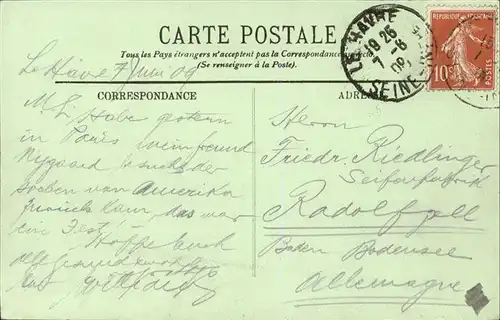 CARTE POSTALE
Tous les Pays étrangers n'acceptent pas la Correspondance au recto
(Se renseigner à la Poste).
LE HAVRE
19 25
7 -6
09
SEINE-INF
REPUBLIQUE FRANÇAISE
10c
POSTES
Le Havre 7 Juni 09
CORRESPONDANCE
M. L. Habe gestern
in Paris
Nygaard besucht der
soeben von Amerika
zurück kam, das war
ein Fest!
Hoffe Euch
alle gesund
ADRESSE
Herrn
Friedr. Riedlinger
Seifenfabrik
Radolfzell
Baden Bodensee
Allemagne